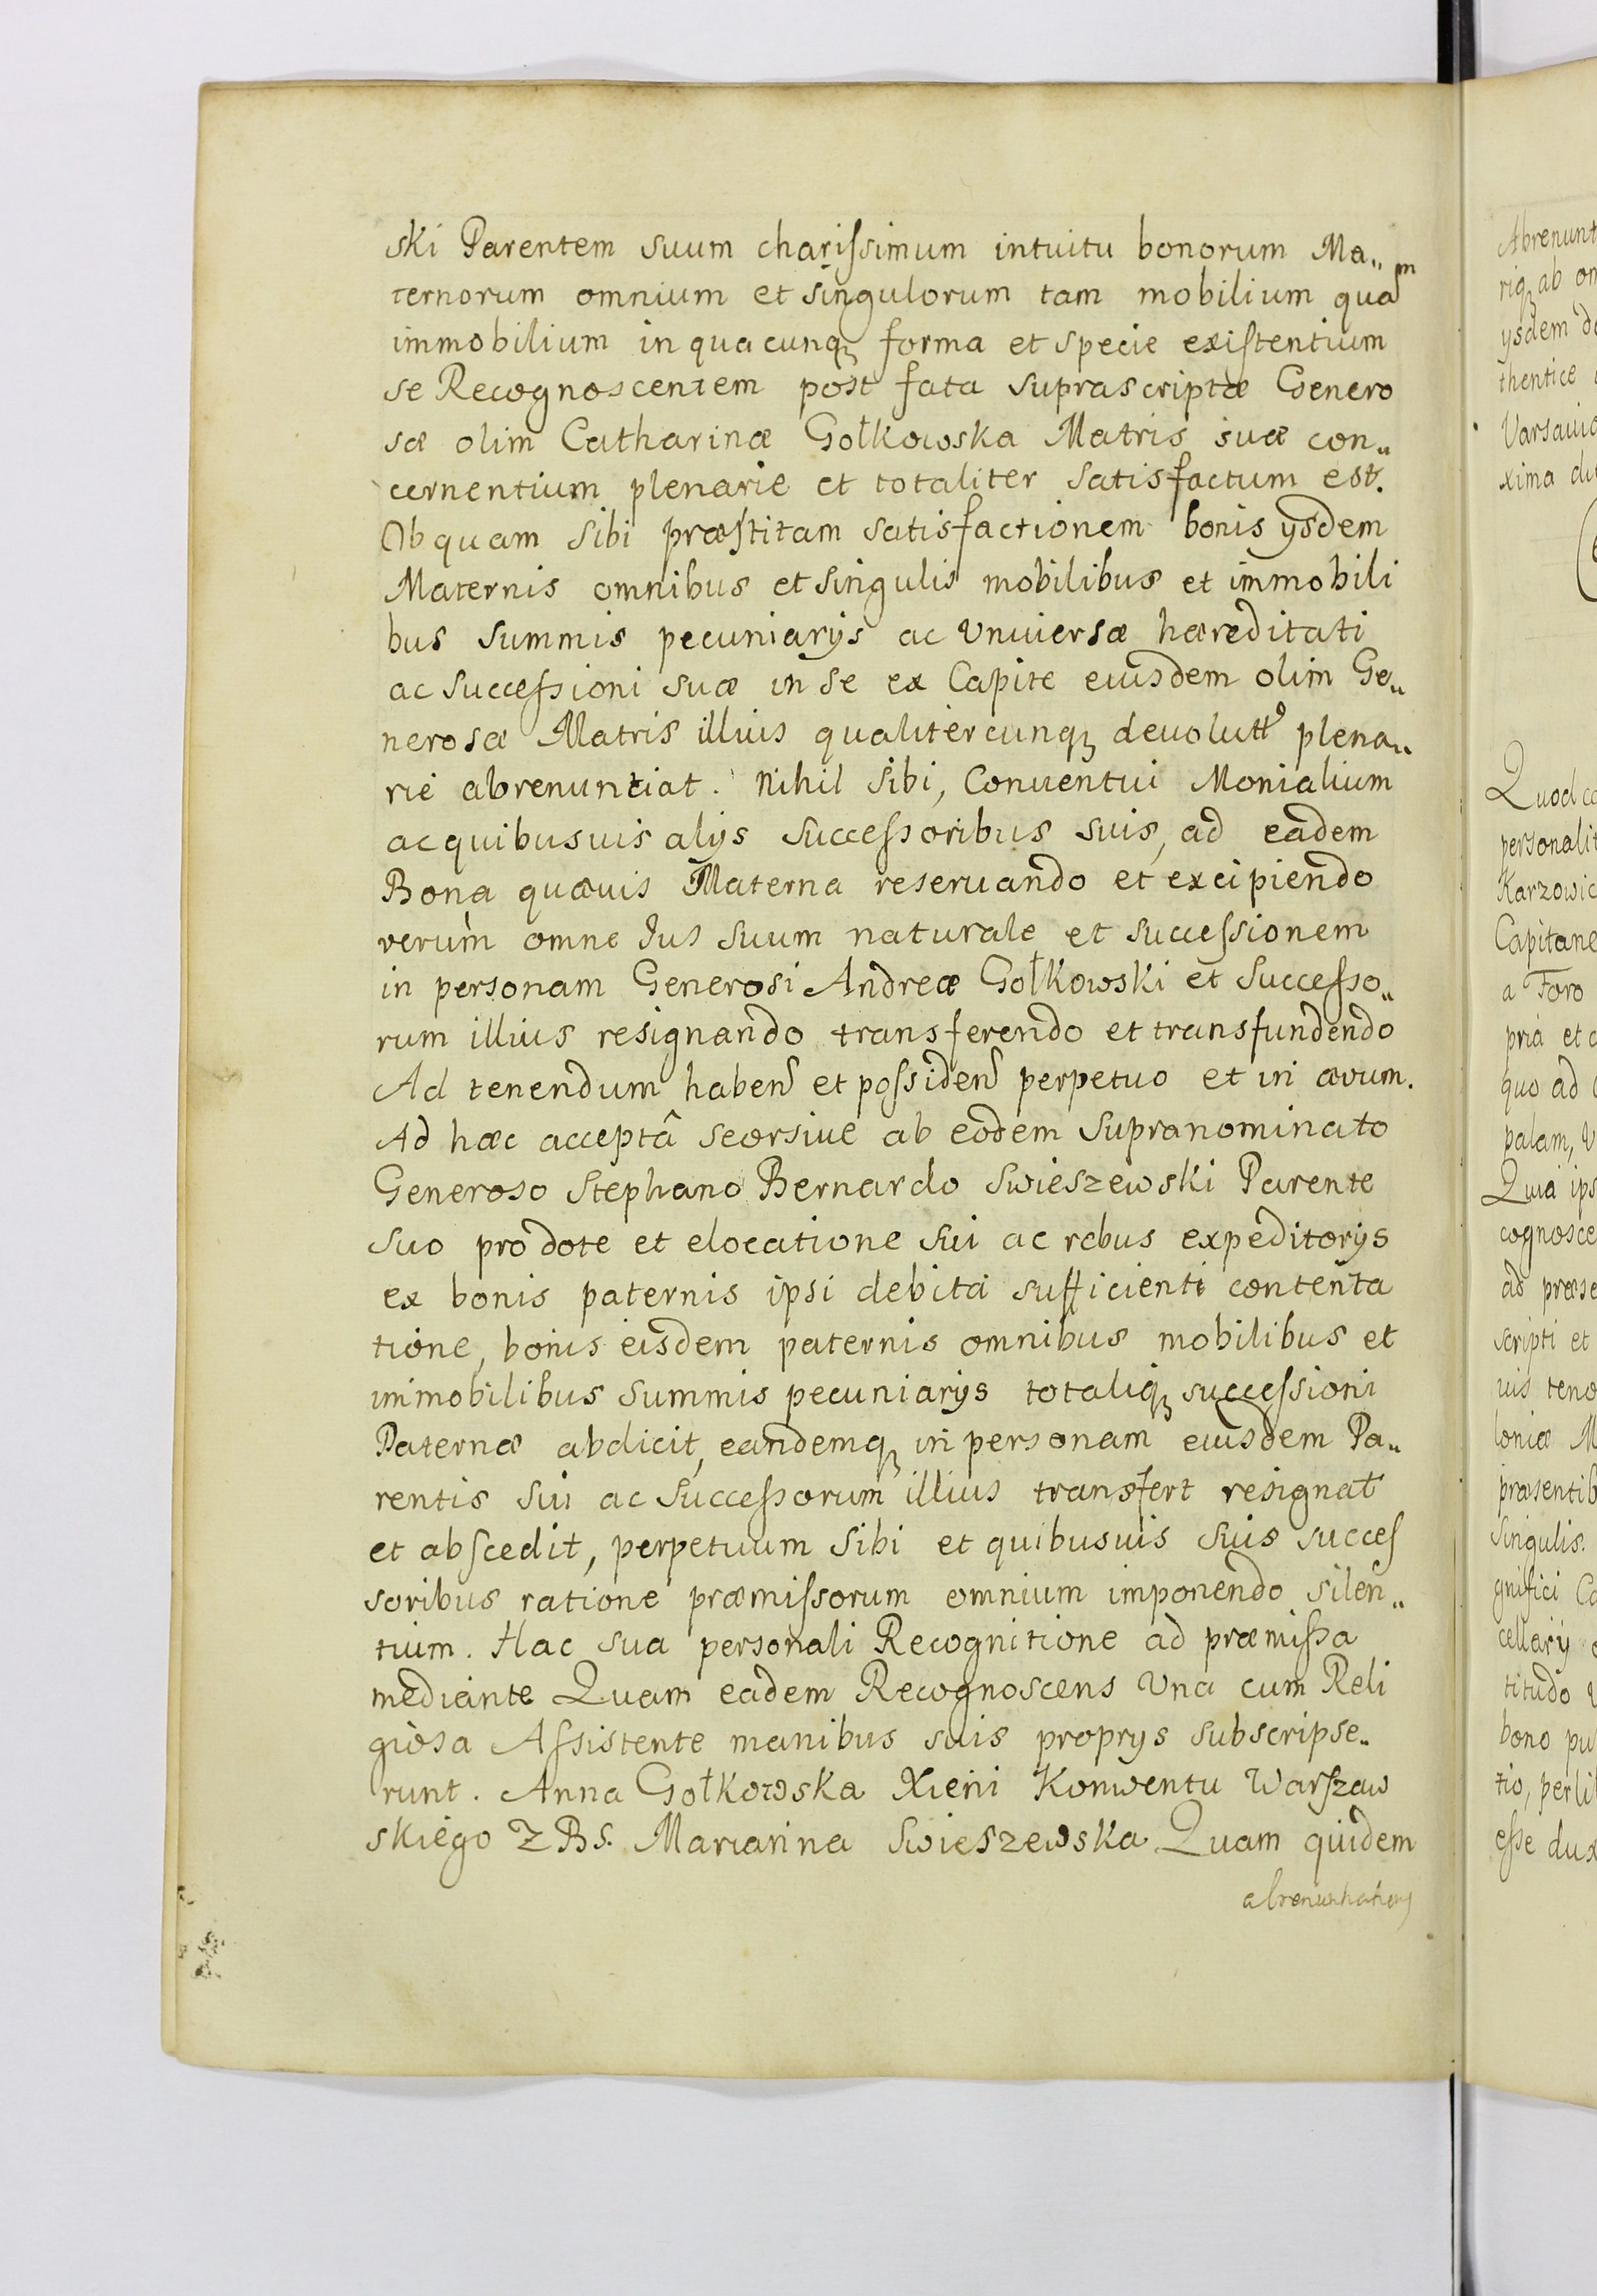 ski Parentem suum charissimum intuitu bonorum Ma„
ternorum omnium et singulorum tam mobilium quam
immobilium in quacunq₃ forma et specie existentium
se Recognoscentem post fata suprascriptæ Genero
sæ olim Catharinæ Gołkowska Matris suæ con„
cernentium plenarie et totaliter satisfactum est.
Ob quam sibi præstitam satisfactionem bonis ysdem
Maternis omnibus et singulis mobilibus et immobili
bus summis pecuniarys ac Vniuersæ hæreditati
ac successioni suæ in se ex Capite eiusdem olim Ge„
nerosæ Matris illius qualitercunq₃ deuolutt⁹ plena„
rie abrenuntiat. Nihil sibi, Conuentui Monialium
ac quibusuis alys successoribus suis, ad eadem
Bona quæuis Materna reseruando et excipiendo
verùm omne Jus suum naturale et successionem
in personam Generosi Andreæ Gołkowski et Successo„
rum illius resignando transferendo et transfundendo
Ad tenendum haben et possiden perpetuo et in ævum.
Ad hæc acceptâ seorsiue ab eodem supranominato
Generoso Stephano Bernardo Swieszewski Parente
suo pro dote et elocatione sui ac rebus expeditorys
ex bonis paternis ipsi debita sufficienti contenta
tione, bonis eisdem paternis omnibus mobilibus et
immobilibus summis pecuniarys totaliq₃ successioni
Paternæ abdicit, eandemq₃ in personam eiusdem Pa„
rentis sui ac successorum illius transfert resignat
et abscedit, perpetuum sibi et quibusuis suis succes
soribus ratione præmissorum omnium imponendo silen„
tium. Hac sua personali Recognitione ad præmissa
mediante Quam eadem Recognoscens Vna cum Reli
giosa Assistente manibus suis proprys subscripse„
runt. Anna Gołkowska Xieni Konwentu Warszaw
skiego Z B S. Marianna Swieszewska Quam quidem
abrenuntiationem
Abrenunt
riq₃ ab om
ysdem de
thentice
Varsauia
xima du
Quod co
personalit
Karzowic
Capitane
a Foro
pria et
quo ad
palam, V
Quia ips
cognosce
ad præse
scripti et
uis teno
loniæ M
præsentib
singulis.
gnifici Ca
cellary
titudo
bono pu
tio, perli
esse dux